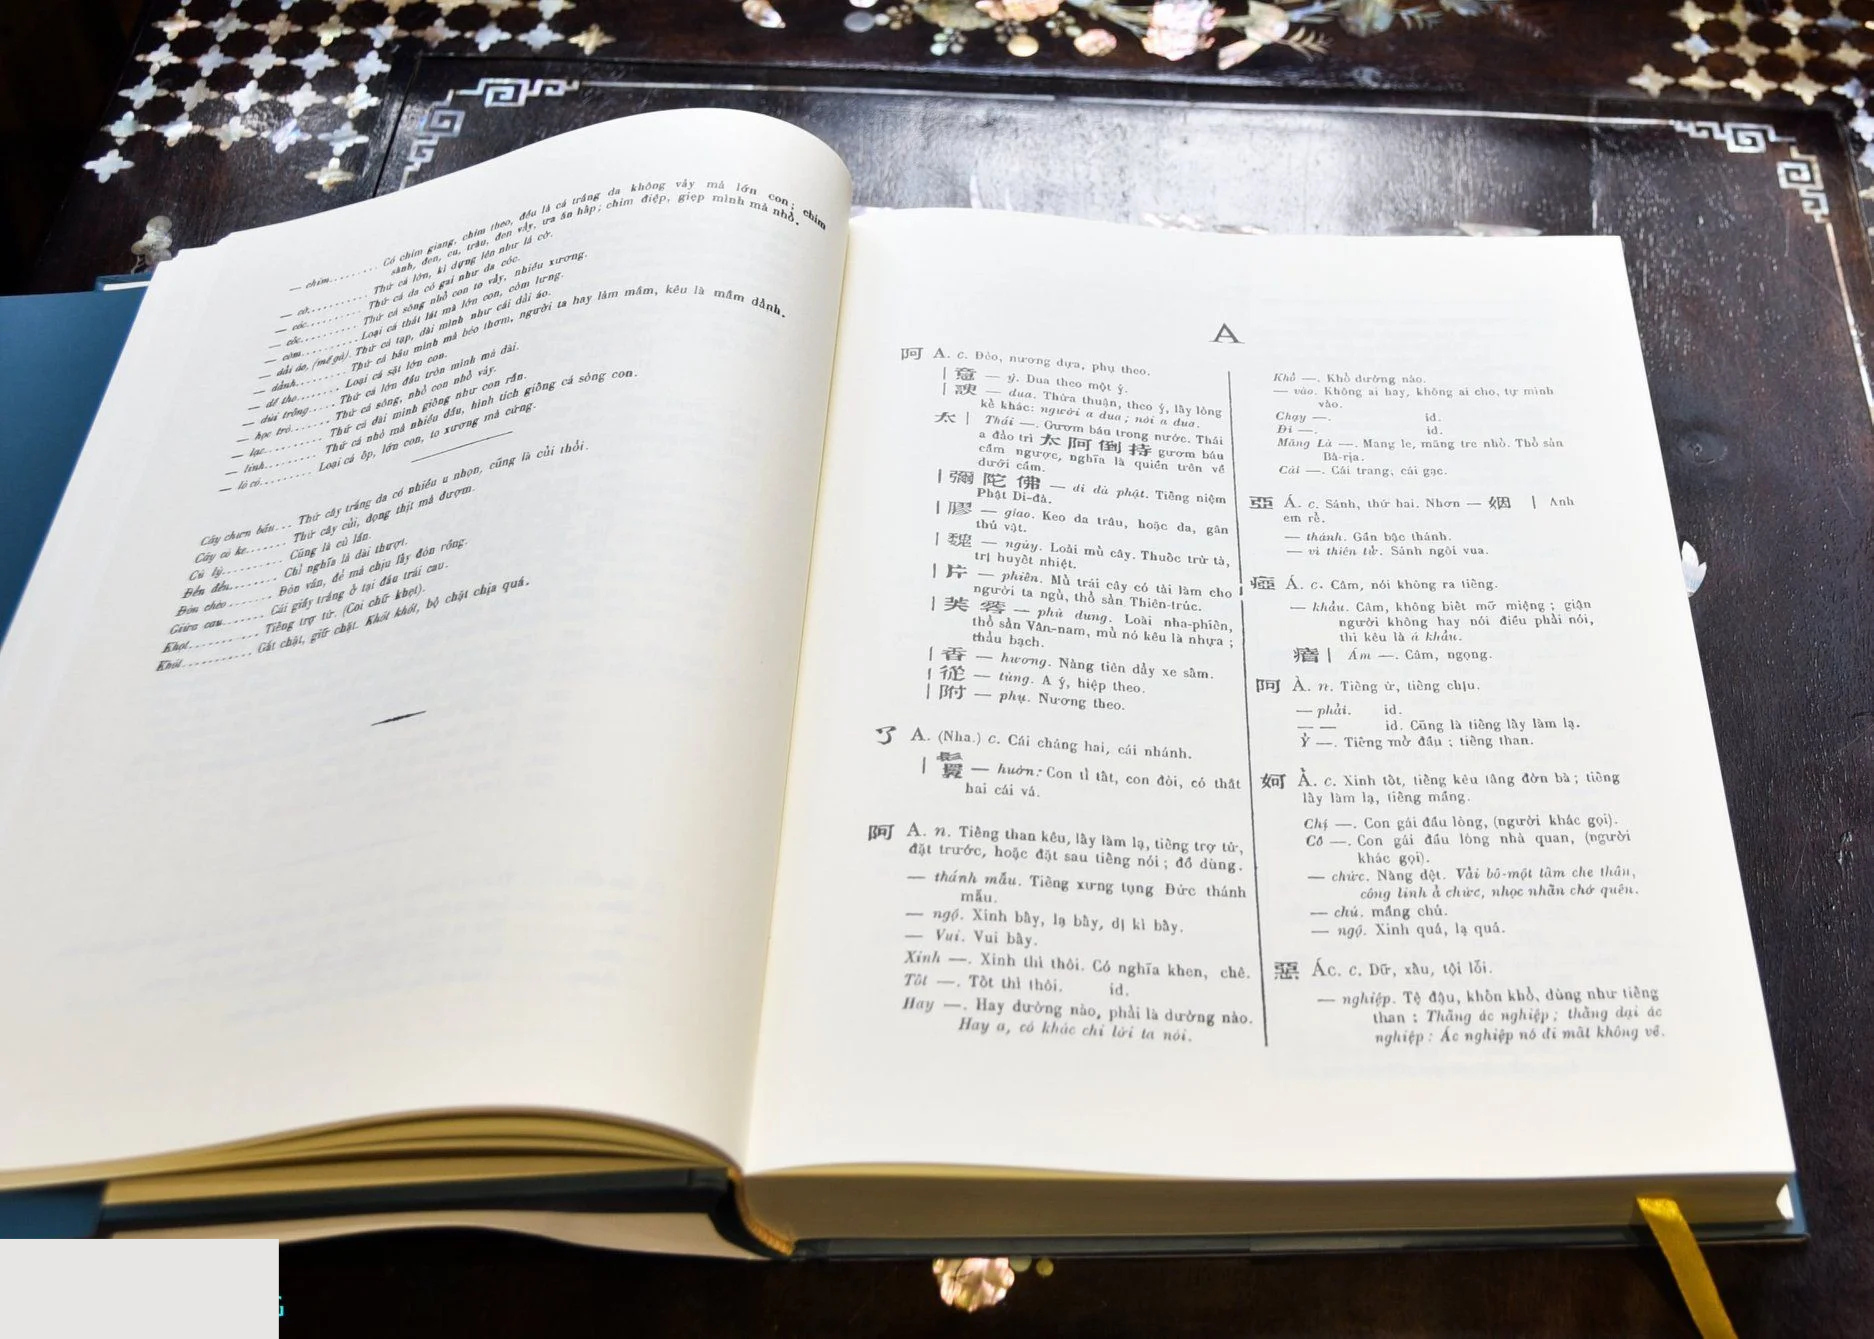 — chim......... Có chim giang, chim theo, đều là cá trắng da không vảy mà lớn con; chim
sành, đen, cu, trâu, đen vảy, ưa ăn hấp; chim điệp, giẹp mình mà nhỏ.
— cờ........... Thứ cá lớn, kì dựng lên như lá cờ.
— cóc.......... Thứ cá da có gai như da cóc.
— cốc.......... Thứ cá sông nhỏ con to vảy, nhiều xương.
— còm.......... Loại cá thát lát mà lớn con, còm lưng.
— dải áo, (mề gà). Thứ cá tạp, dài mình như cái dải áo.
— dảnh......... Thứ cá bầu mình mà béo thơm, người ta hay làm mắm, kêu là mắm dảnh.
— dế tho....... Loại cá sặt lớn con.
— đùi trống..... Thứ cá lớn đầu tròn mình mà dài.
— học trò....... Thứ cá sông, nhỏ con nhỏ vảy.
— lạc.......... Thứ cá dài mình giống như con rắn.
— linh......... Thứ cá nhỏ mà nhiều dầu, hình tích giống cá sông con.
— lò có......... Loại cá ộp, lớn con, to xương mà cứng.
Cây chưn bầu... Thứ cây trắng da có nhiều u nhọn, cũng là củi thổi.
Cây cò ke....... Thứ cây củi, dọng thịt mà đượm.
Cù lỳ.......... Cũng là cù lần.
Đến đến........ Chỉ nghĩa là dài thượi.
Đòn chèo....... Đòn ván, để mà chịu lấy đòn rồng.
Giữa cau....... Cái giấy trắng ở tại đầu trái cau.
Khọt........... Tiếng trợ từ. (Coi chữ khẹt).
Khút........... Gắt chặt, giữ chặt. Khót khót, bộ chặt chịa quá.
A
阿 A. c. Đẻo, nương dựa, phụ theo.
| 意 — ý. Dua theo một ý.
| 諛 — dua. Thừa thuận, theo ý, lấy lòng
kẻ khác: người a dua; nói a dua.
太 | Thái —. Gươm báu trong nước. Thái
a đảo trì 太 阿 倒 持 gươm báu
cầm ngược, nghĩa là quiền trên về
dưới cầm.
| 彌 陀 佛 — di dà phật. Tiếng niệm
Phật Di-đà.
| 膠 — giao. Keo da trâu, hoặc da, gân
thú vật.
| 魏 — ngùy. Loài mủ cây. Thuốc trừ tà,
trị huyết nhiệt.
| 片 — phiến. Mủ trái cây có tài làm cho
người ta ngủ, thổ sản Thiên-trúc.
| 芙 蓉 — phù dung. Loài nha-phiến,
thổ sản Vân-nam, mủ nó kêu là nhựa;
thẩu bạch.
| 香 — hương. Nàng tiên đẩy xe sấm.
| 從 — tùng. A ý, hiệp theo.
| 附 — phụ. Nương theo.
了 A. (Nha.) c. Cái cháng hai, cái nhánh.
| 鬟 — huờn: Con tì tất, con đòi, có thắt
hai cái vá.
阿 A. n. Tiếng than kêu, lấy làm lạ, tiếng trợ từ,
đặt trước, hoặc đặt sau tiếng nói; đồ dùng.
— thánh mẫu. Tiếng xưng tụng Đức thánh
mẫu.
— ngộ. Xinh bấy, lạ bấy, dị kì bấy.
— Vui. Vui bấy.
Xinh —. Xinh thì thôi. Có nghĩa khen, chê.
Tốt —. Tốt thì thôi. id.
Hay —. Hay dường nào, phải là dường nào.
Hay a, có khác chi lời ta nói.
Khổ —. Khổ dường nào.
— vào. Không ai hay, không ai cho, tự mình
vào.
Chạy —. id.
Đi —. id.
Măng Là —. Mang le, măng tre nhỏ. Thổ sản
Bà-rịa.
Cái —. Cái trang; cái gạc.
亞 Á. c. Sánh, thứ hai. Nhơn — 姻 | Anh
em rể.
— thánh. Gần bậc thánh.
— vì thiên tử. Sánh ngôi vua.
瘂 Á. c. Câm, nói không ra tiếng.
— khẩu. Câm, không biết mỡ miệng; giận
người không hay nói điều phải nói,
thì kêu là á khẩu.
瘖 | Ám —. Câm, ngọng.
阿 À. n. Tiếng ừ, tiếng chịu.
— phải. id.
— — id. Cũng là tiếng lấy làm lạ.
Ỷ —. Tiếng mở đầu; tiếng than.
妸 Ả. c. Xinh tốt, tiếng kêu tâng đờn bà; tiếng
lấy làm lạ, tiếng mắng.
Chị —. Con gái đầu lòng, (người khác gọi).
Cô —. Con gái đầu lòng nhà quan, (người
khác gọi).
— chức. Nàng dệt. Vải bô-một tấm che thân,
công linh ả chức, nhọc nhằn chớ quên.
— chú. mắng chủ.
— ngộ. Xinh quá, lạ quá.
惡 Ác. c. Dữ, xấu, tội lỗi.
— nghiệp. Tệ đậu, khốn khổ, dùng như tiếng
than: Thằng ác nghiệp; thằng dại ác
nghiệp: Ác nghiệp nó đi mất không về.